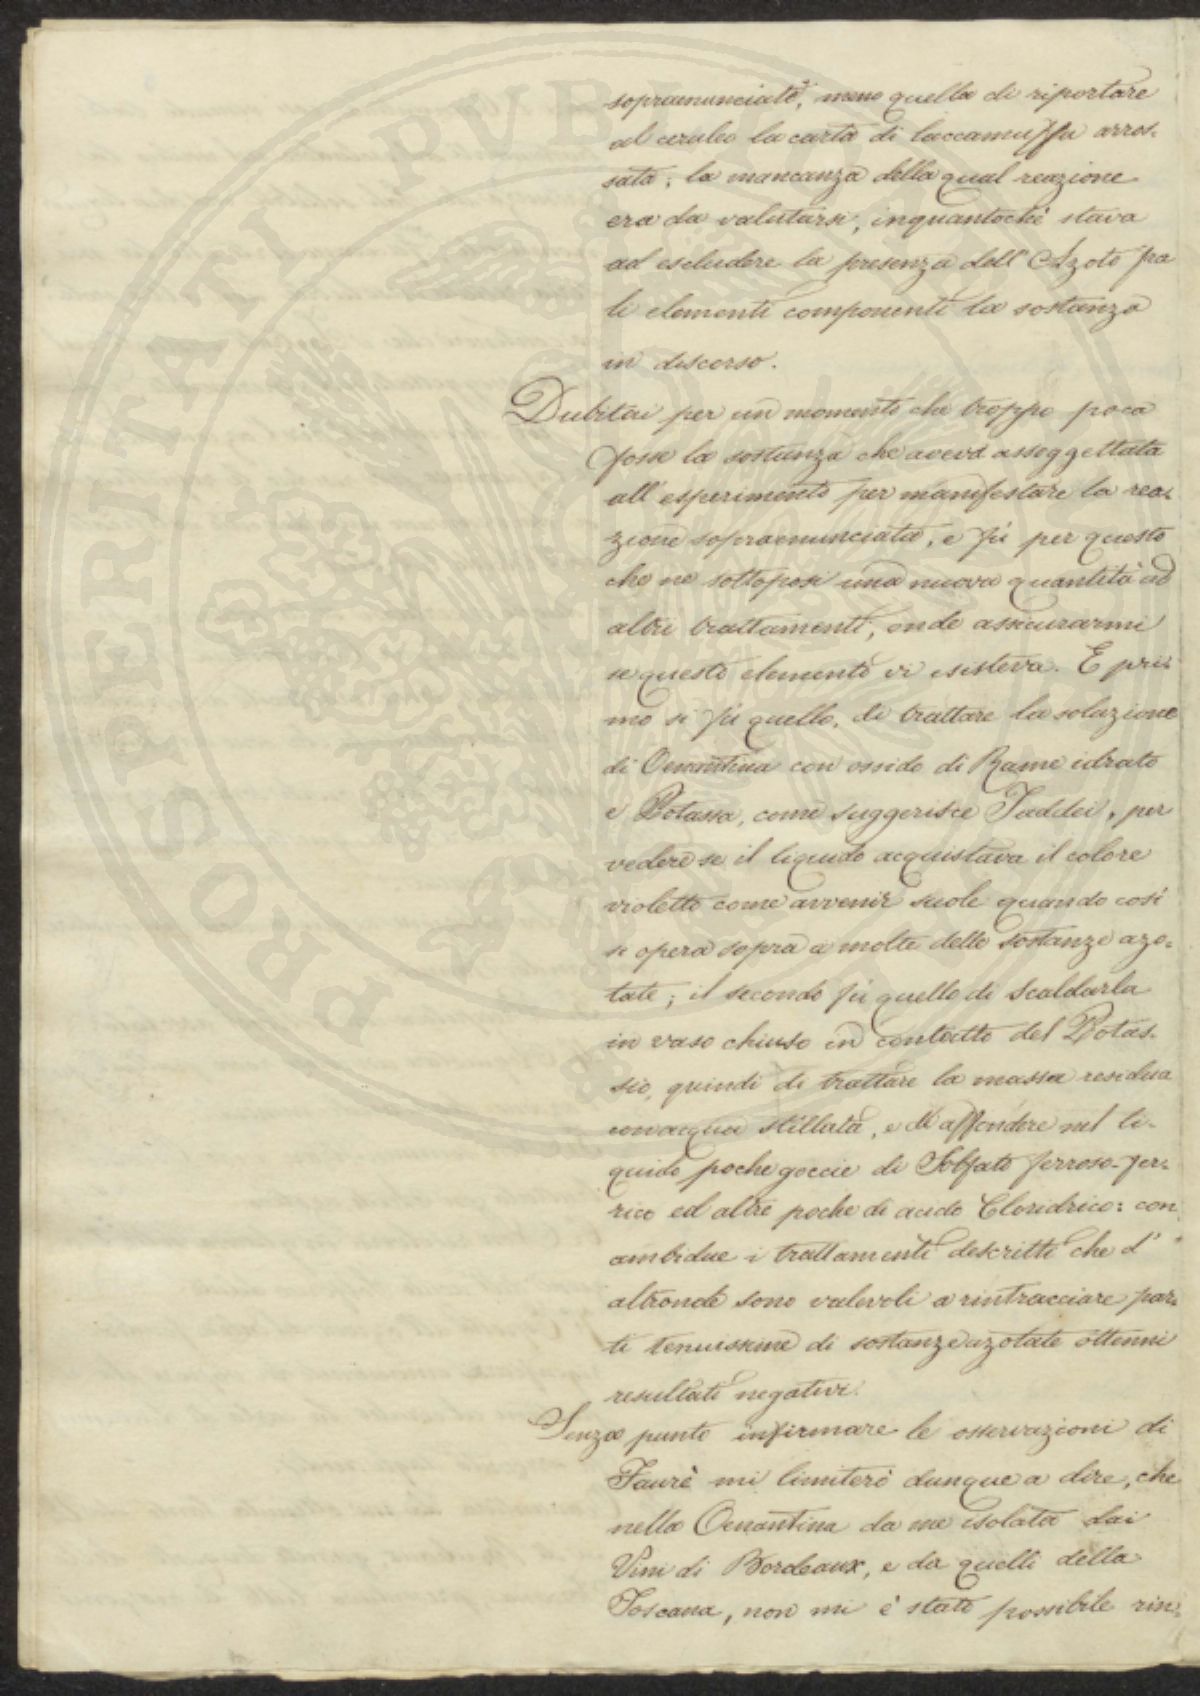 sopraenunciate, meno quella di riportare
al ceruleo la carta di laccamuffa arros-
sata; la mancanza della qual reazione
era da valutarsi, inquantochè stava
ad escludere la presenza dell'Azoto fra
li elementi componenti la sostanza
in discorso.
Dubitai per un momento che troppo poca
fosse la sostanza che aveva assoggettata
all'esperimento per manifestare la rea-
zione sopraenunciata, e fù per questo
che ne sottoposi una nuova quantità ad
altri trattamenti, onde assicurarmi
se questo elemento vi esisteva. E pri-
mo si fù quello, di trattare la soluzione
di Oenantina con ossido di Rame idrato
e Potassa, come suggerisce Taddei, per
vedere se il liquido acquistava il colore
violetto come avvenir suole quando così
si opera sopra a molte delle sostanze azo-
tate; il secondo fù quello di Scaldarla
in vaso chiuso in contatto del Potas-
sio, quindi di trattare la massa residua
con acqua stillata, e di affondere nel li-
quido poche goccie di Solfato ferroso-fer-
rico ed altre poche di acido Cloridrico: con
ambidue i trattamenti descritti che d'
altronde sono valevoli a rintracciare par-
ti tenuissime di sostanze azotate ottenni
resultati negativi.
Senza punto infirmare le osservazioni di
Faurè mi limiterò dunque a dire, che
nella Oenantina da me isolata dai
Vini di Bordeaux, e da quelli della
Toscana, non mi è stato possibile rin-
PROSPERITATI PUBLICAE